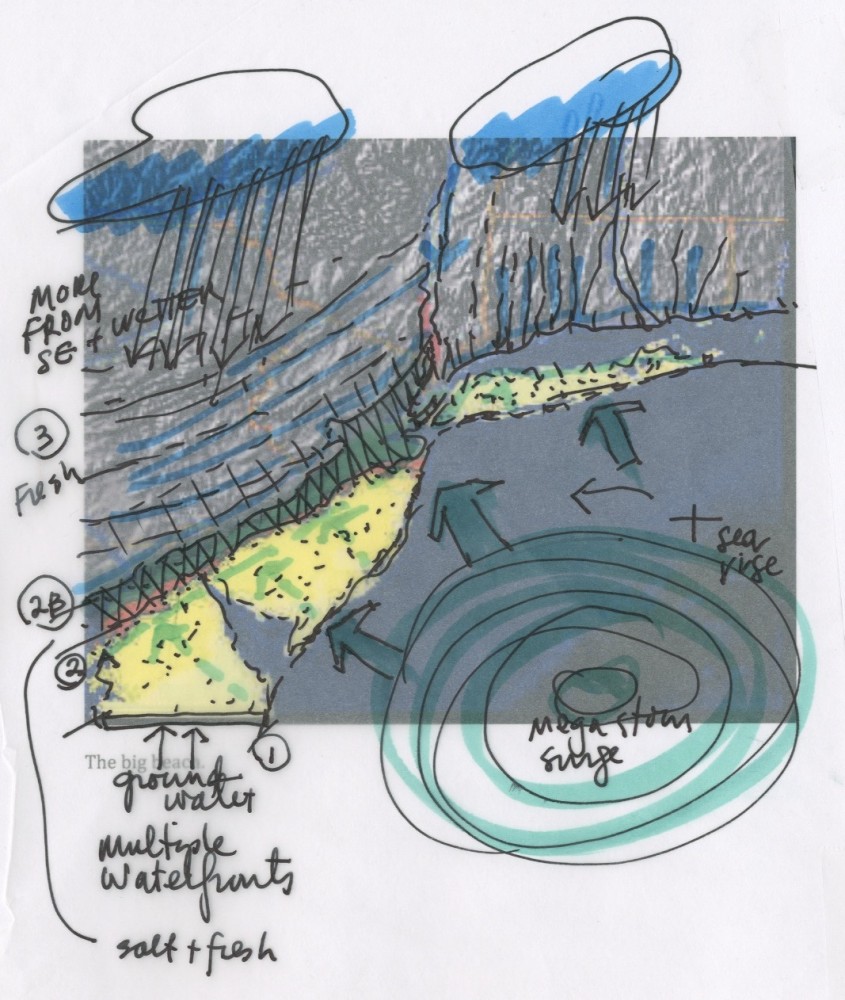 MORE
FROM
SE + WETTER
3
Fresh
+ sea
rise
2B
2
mega storm
surge
1
The big beach.
ground
water
multiple
waterfronts
salt + fresh